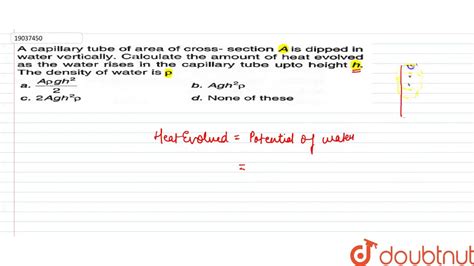 19037450
A capillary tube of area of cross- section A is dipped in
water vertically. Calculate the amount of heat evolved
as the water rises in the capillary tube upto height h.
The density of water is ρ
a. Aρgh²/2 b. Agh²ρ
c. 2Agh²ρ d. None of these
Heat Evolved = Potential of water
=
doubtnut